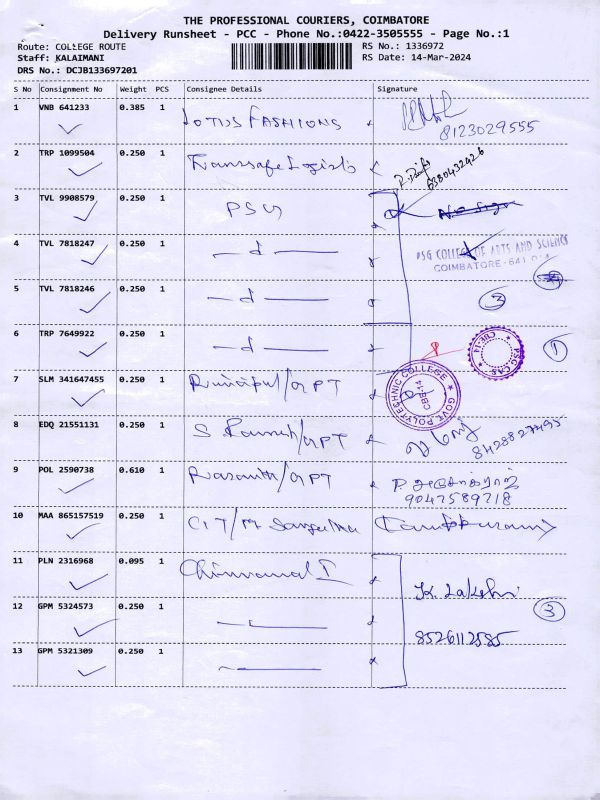 THE PROFESSIONAL COURIERS, COIMBATORE
Delivery Runsheet - PCC - Phone No.:0422-3505555 - Page No.:1
Route: COLLEGE ROUTE RS No.: 1336972
Staff: KALAIMANI RS Date: 14-Mar-2024
DRS No.: DCJB133697201
S No Consignment No Weight PCS Consignee Details Signature
1 VNB 641233 0.385 1 LOTUS FASHIONS
8123029555
2 TRP 1099504 0.250 1 Transsafe Logistics
6380432426
3 TVL 9908579 0.250 1 PSG No Sign
4 TVL 7818247 0.250 1 - d -
PSG COLLEGE OF ARTS AND SCIENCE
COIMBATORE - 641 014
5 TVL 7818246 0.250 1 - d - 3
6 TRP 7649922 0.250 1 - d - 1
PSG CAS CBE-14
7 SLM 341647455 0.250 1 Principal/GPT
GOVT POLYTECHNIC COLLEGE CBE-14
8 EDQ 21551131 0.250 1 S /GPT
8428827495
9 POL 2590738 0.610 1 Vasanth/GPT
9047589718
10 MAA 865157519 0.250 1 CIT/M Sangeetha
11 PLN 2316968 0.095 1 K. Lakshmi
12 GPM 5324573 0.250 1 3
8526112585
13 GPM 5321309 0.250 1